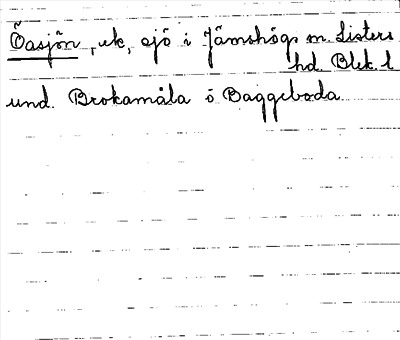 Öasjön, ek, sjö i Jämshögs sn. Listers
hd. Blek. l
und. Brokamåla o Baggeboda